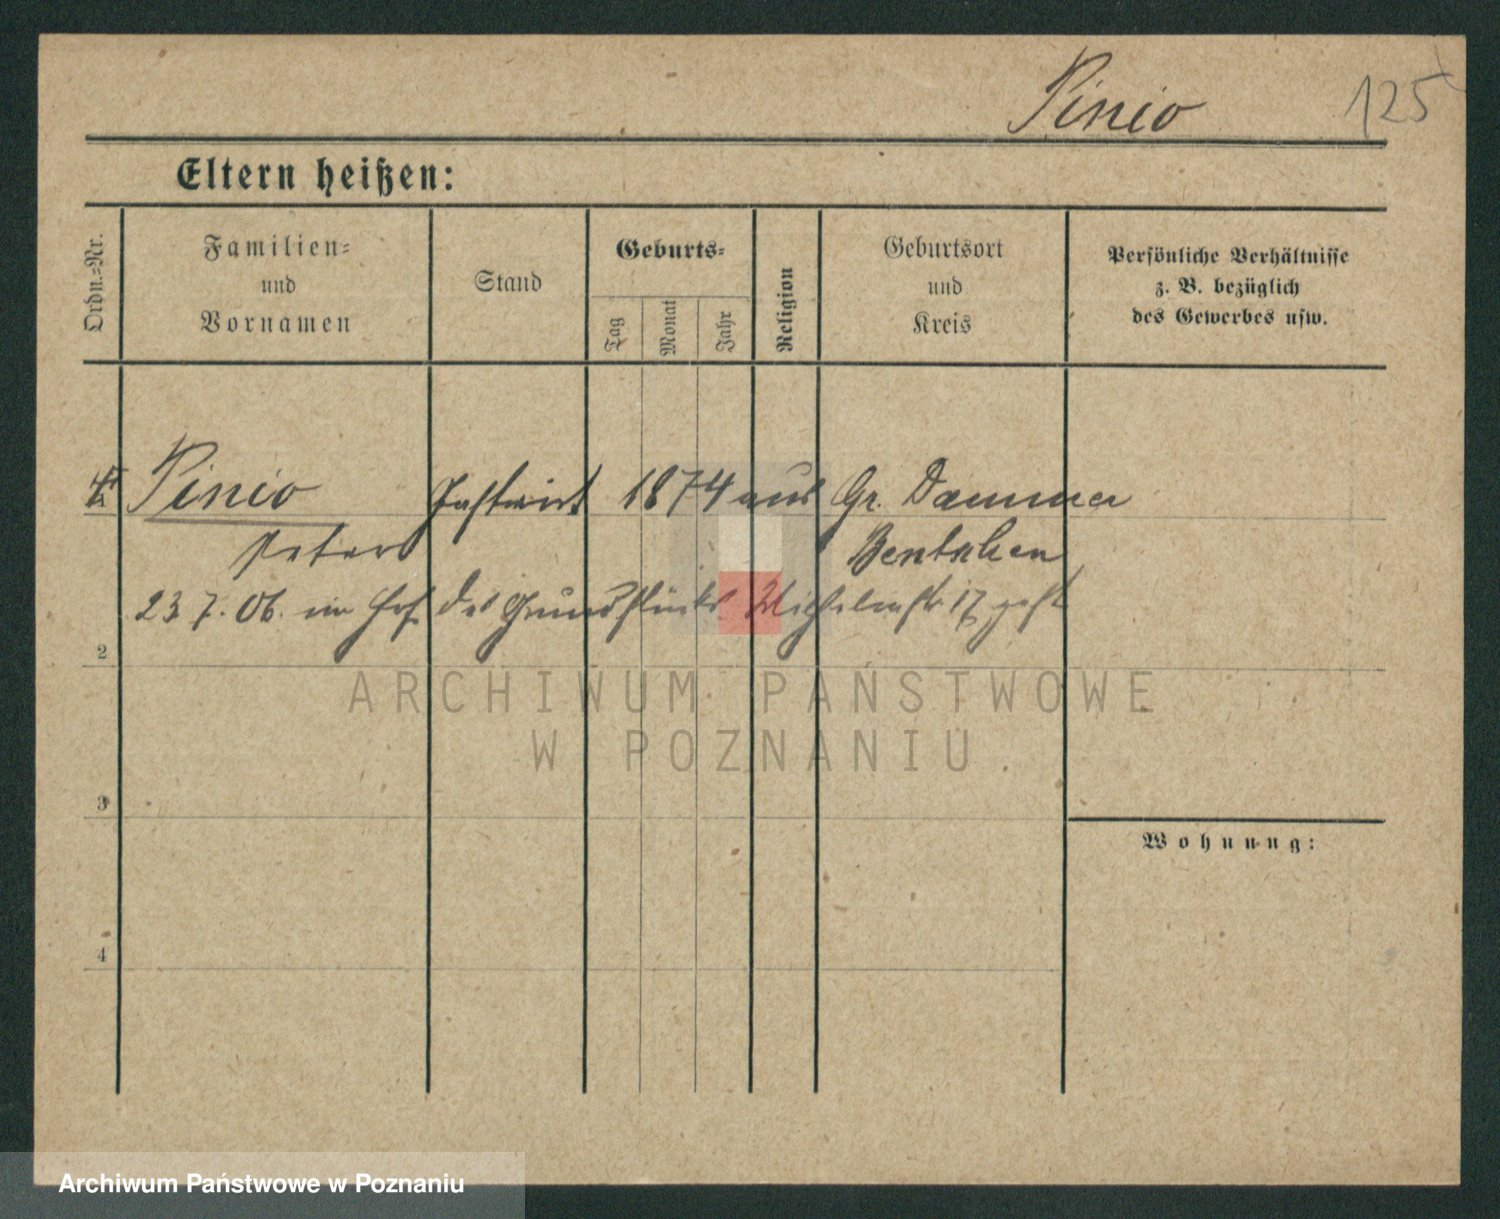 Pinio 125
Eltern heißen:
Ordn.-Nr.
Familien-
und
Vornamen
Stand
Geburts-
Tag
Monat
Jahr
Religion
Geburtsort
und
Kreis
Persönliche Verhältnisse
z. B. bezüglich
des Gewerbes usw.
Pinio Gastwirt 1874 aus Gr. Dammer
Peter Bentschen
23 7. 06. im Hof des Grundstücks Wilhelmstr 17 gest
2
3
4
Wohnung:
ARCHIWUM PAŃSTWOWE
W POZNANIU
Archiwum Państwowe w Poznaniu